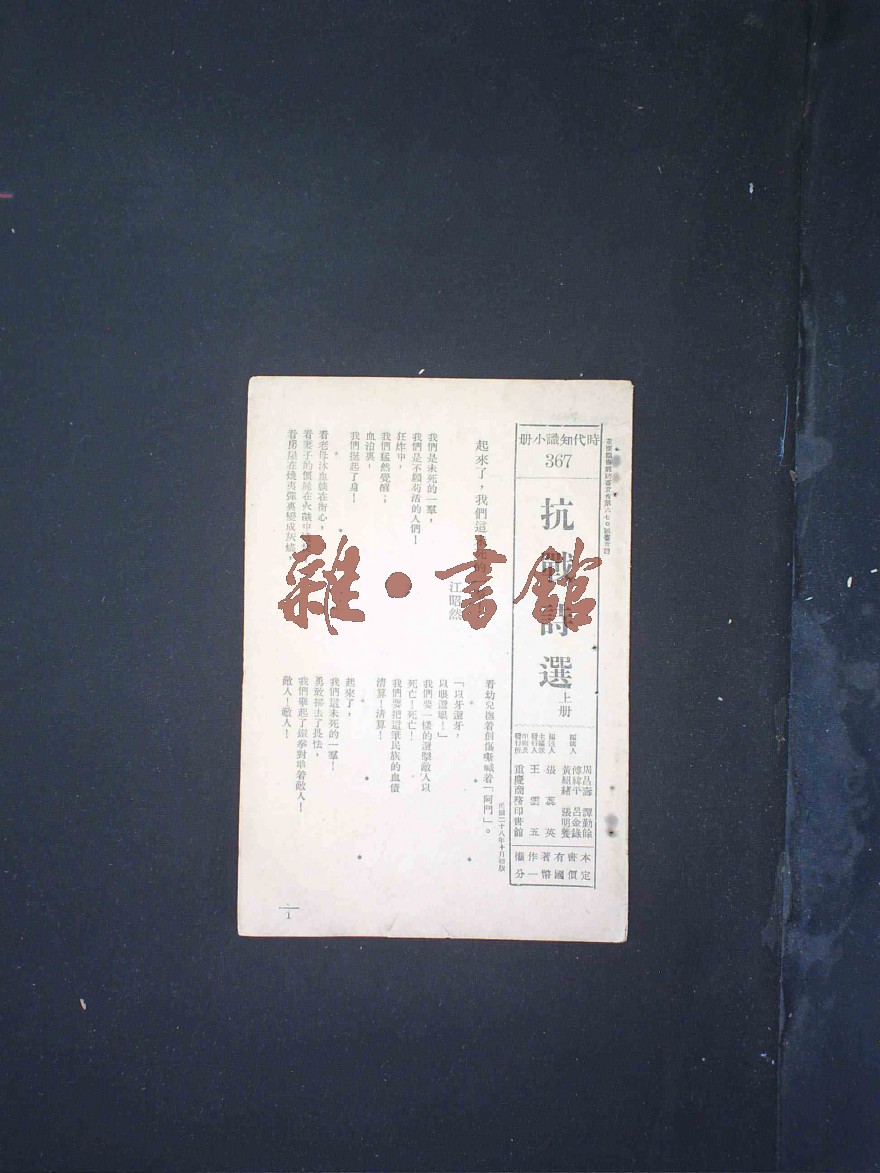 時代知識小册
367
抗戰詩選 上册
編號人 周昌壽 譚勤餘 傅緯平 呂金錄 黃紹緒 張明養
編選人 張蕊英
主編兼發行人 王雲五
印刷及發行所 重慶商務印書館
本書有著作權
定價國幣一分
民國二十八年十月初版
起來了,我們這
江昭然
我們是未死的一羣,
我們是不願苟活的人們!
狂炸中,
我們猛然覺醒;
血泊裏,
我們挺起了身!
看老母沐血躺在街心,
看妻子的僵屍在火燄中
看房屋在燒夷彈裏變成灰燼,
看幼兒撫着創傷嘶喊着「阿門」。
「以牙還牙,
以眼還眼!」
我們要一樣的還擊敵人以
死亡!死亡!
我們要把這筆民族的血債
清算!清算!
起來了,
我們這未死的一羣!
勇敢掃去了畏怯,
我們舉起了鐵拳對準着敵人!
敵人!敵人!
1
雜·書館